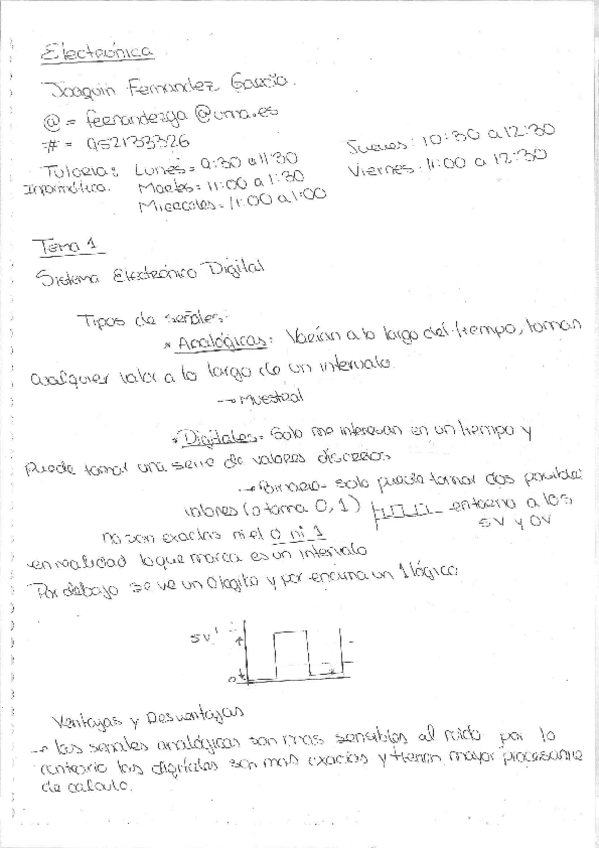 Electrónica
Joaquin Fernandez García.
@ = fernandezga@uma.es
# = 952133326
Tutoria: Lunes = 9:30 a 11:30
Jueves: 10:30 a 12:30
Informática. Martes = 11:00 a 1:30
Viernes: 11:00 a 12:30
Miercoles = 11:00 a 1:00
Tema 1
Sistema Electrónico Digital
Tipos de señales:
* Analógicas: Varían a lo largo del tiempo, toman
cualquier valor a lo largo de un intervalo.
→ Muestreal
* Digitales = Solo me interesan en un tiempo y
Puede tomar una serie de valores discretos
→ Binario = solo puede tomar dos posibles
valores (o toma 0, 1) entorno a los
5V y 0V
no son exactas ni el 0 ni 1
en realidad lo que marca es un intervalo
Por debajo se ve un 0 logito y por encima un 1 lógico.
5V
0
Ventajas y Desventajas
→ las señales analógicas son mas sensibles al ruido por lo
contrario las digitales son mas exactas y tienen mayor
de calculo.